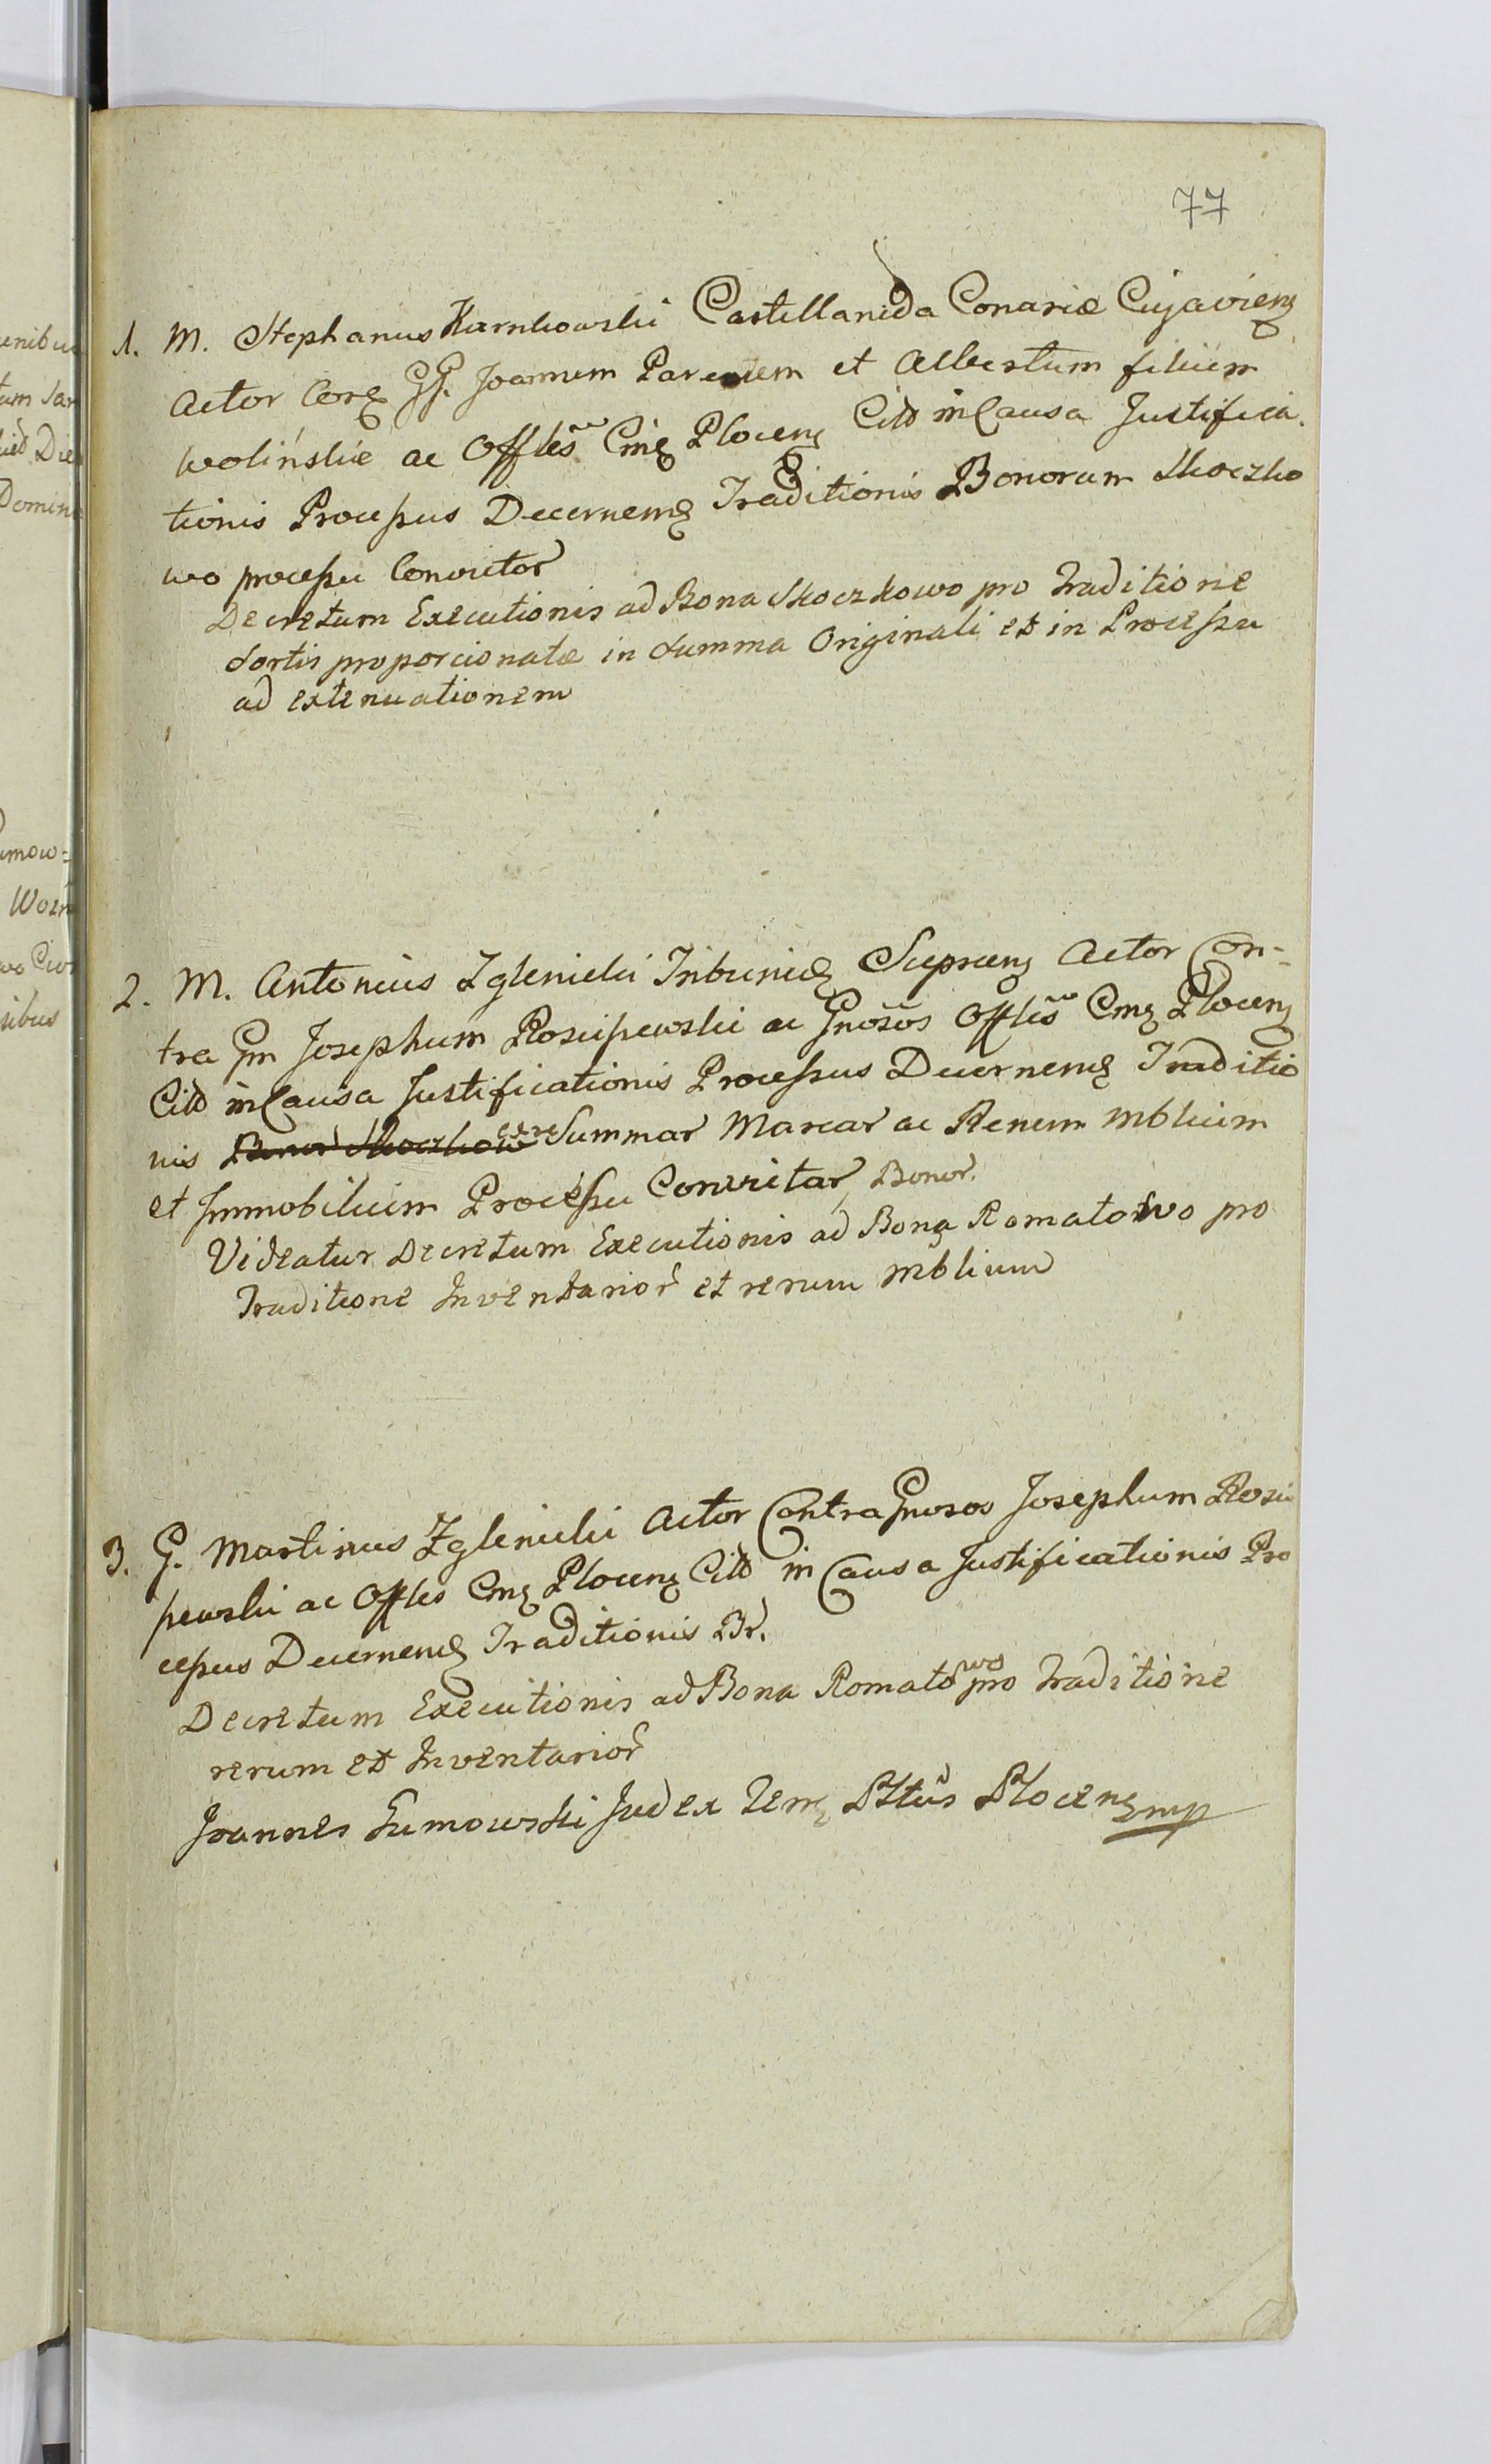 77
1. M. Stephanus Karnkowski Castellanida Conariæ Cujaviens
Actor Cora GG. Joannem Parentem et Albertum filium
Wolińskie ac Offles Cms Plocens Citt in Causa Justifica.
tionis Processus Decernens Traditionis Bonorum Skoczko
wo processu Convictor
Decretum Executionis ad Bona Skoczkowo pro Traditione
Sortis proporcionatæ in Summa Originali et in Processu
ad extenuationem
2. M. Antonius Zglenicki Tribunid Sieprcens Actor Con-
tra Gm Josephum Rosciszewski ac Gnosos Offles Cms Plocens
Citt in Causa Justificationis Processus Decernens Traditio
nis Bonor Skoczkow Summar Marcar ac Renem Mblium
et Immobilium Processu Convictar Bonor.
Videatur Decretum Executionis ad Bona Romatowo pro
Traditione Inventarior et rerum Mblium
3. G. Martinus Zglenicki Actor Contra Gnosos Josephum Rosci
szewski ac Offles Cms Plocens Citt in Causa Justificationis Pro
cessus Decernens Traditionis Br.
Decretum Executionis ad Bona Romatowo pro Traditione
rerum et Inventarior
Joannes Gumowski Judex Terrs Plttus Plocens mp